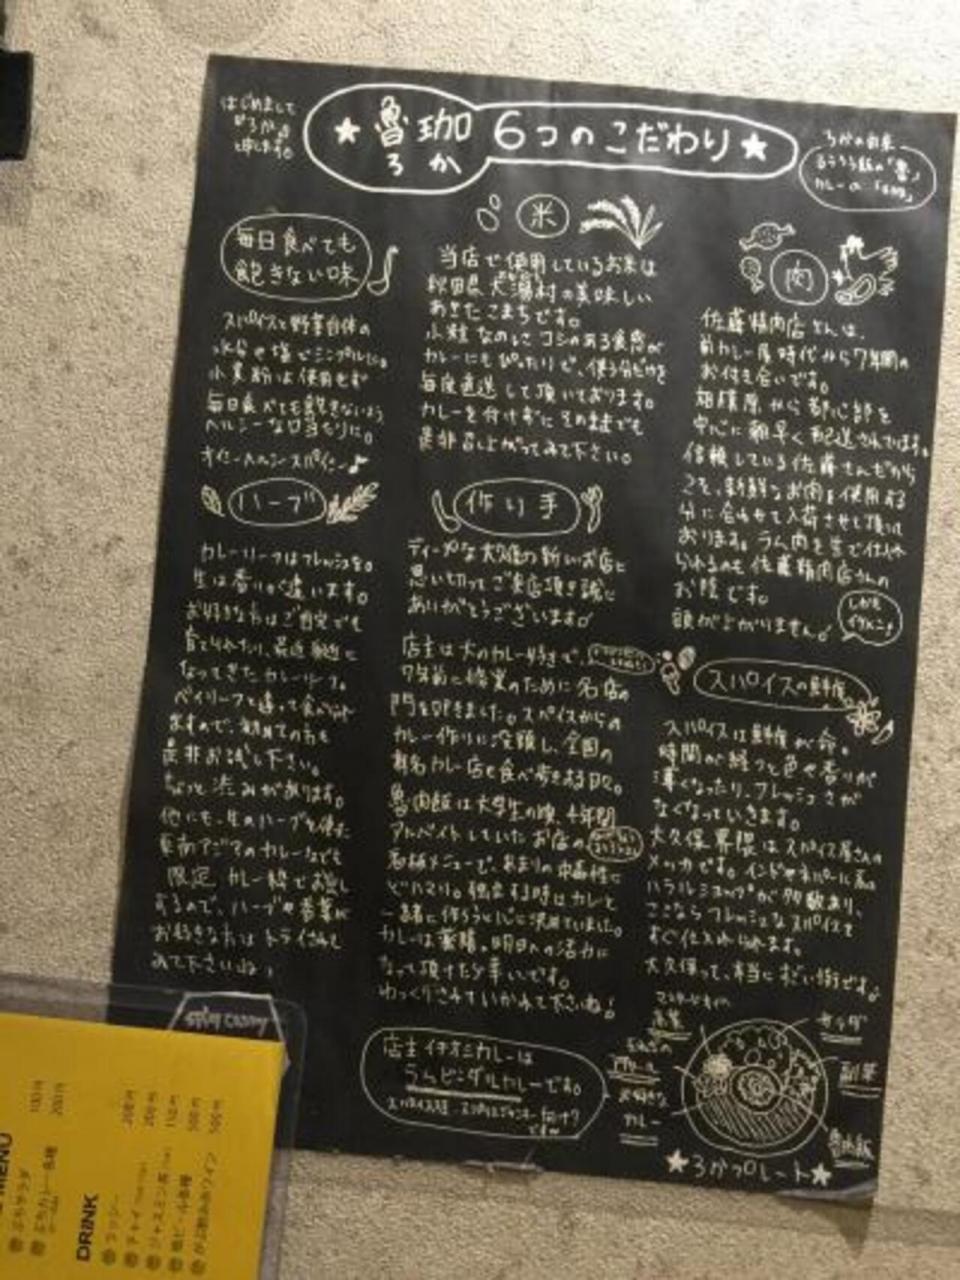 はじめまして
ろか
申します。
★魯珈 6つのこだわり★
ろか
ろかの由来
カレーの
毎日食べても
飽きない味
スパイスと野菜自体の
水分や塩でシンプルに。
小麦粉は使用せず
毎日食べても飽きないよう
ヘルシーな口当たりに。
米
当店で使用しているお米は
秋田県大潟村の美味しい
あきたこまちです。
小粒なのにコシのある食感が
カレーにもぴったりで、使う分だけを
毎度直送して頂いております。
カレーを付けずにそのままでも
是非召し上がってみて下さい。
肉
佐藤精肉店さんは、
前カレー屋時代から7年間の
お付き合いです。
相模原から都心部を
中心に朝早く配送されています。
信頼している佐藤さんだから
こそ、新鮮なお肉を使用する
分に合わせて入荷させて頂いて
おります。ラム肉を生で仕入れ
られるのも佐藤精肉店さんの
お陰です。
頭が上がりません!
しかも
イケメン♪
ハーブ
カレーリーフはフレッシュを。
生は香りが違います。
お好きな方はご自宅でも
育てられたり、最近身近に
なってきたカレーリーフ。
ベイリーフと違って食べられ
ますので、初めての方も
是非お試し下さい。
ちょっと渋みがあります。
他にも、生のハーブを使った
東南アジアのカレーなども
限定カレー枠でお出し
するので、ハーブや香菜が
お好きな方はトライされて
みて下さいね♪
作り手
ディープな大久保の新しいお店に
思い切ってご来店頂き誠に
ありがとうございます!
店主は大のカレー好きで、
7年前に修業のために名店の
門を叩きました。スパイスからの
カレー作りに没頭し、全国の
有名カレー店を食べ歩きする日々。
魯肉飯は大学生の頃、4年間
アルバイトしていたお店の
看板メニューで、あまりの中毒性に
どハマり。独立する時はカレーと
一緒に作ろうと心に決めていました。
カレーは薬膳。明日への活力に
なって頂けたら幸いです。
ゆっくりされていかれて下さいね!
スパイスの鮮度
スパイスは鮮度が命。
時間が経つと色や香りが
薄くなったり、フレッシュさが
なくなっていきます。
大久保界隈はスパイス屋さんの
メッカです。インドやネパール系の
ハラルショップが多数あり、
ここならフレッシュなスパイスを
すぐ仕入れられます。
大久保って、本当にすごい街です。
店主イチオシカレーは
ラムビンダルカレーです。
サラダ
副菜
魯肉飯
お好きな
カレー
★ろかプレート★
MENU
ぷちサラダ
ぷちカレー各種
100円
200円
DRINK
ラッシー
チャイ
ジャスミン茶
瓶ビール各種
200円
200円
150円
500円
500円